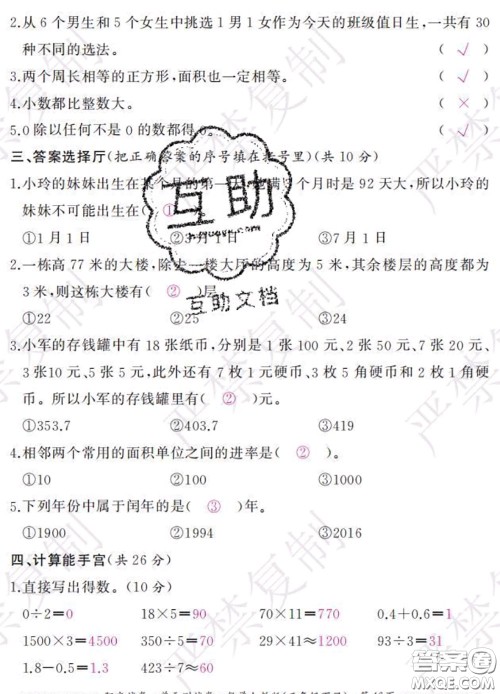 2.从 6 个男生和 5 个女生中挑选 1 男 1 女作为今天的班级值日生,一共有 30
种不同的选法。 ( √ )
3.两个周长相等的正方形,面积也一定相等。 ( √ )
4.小数都比整数大。 ( × )
5.0 除以任何不是 0 的数都得 0。 ( √ )
三、答案选择厅(把正确答案的序号填在括号里)(共 10 分)
1.小玲的妹妹出生在某个月的第一天,她满3个月时是 92 天大,所以小玲的
妹妹不可能出生在( ① )
①1月1日 ②3月1日 ③7月1日
2.一栋高 77 米的大楼,除去一楼大厅的高度为 5 米,其余楼层的高度都为
3 米,则这栋大楼有( ② )层。
①22 ②25 ③24
3.小军的存钱罐中有 18 张纸币,分别是 1 张 100 元、2 张 50 元、7 张 20 元、
3 张10 元、5 张 5 元,此外还有 7 枚 1 元硬币、3 枚 5 角硬币和 2 枚 1 角硬
币。所以小军的存钱罐里有( ② )元。
①353.7 ②403.7 ③419
4.相邻两个常用的面积单位之间的进率是( ② )。
①10 ②100 ③1000
5.下列年份中属于闰年的是( ③ )年。
①1900 ②1994 ③2016
四、计算能手宫(共 26 分)
1.直接写出得数。(10 分)
0÷2=0 18×5=90 70×11=770 0.4+0.6=1
1500×3=4500 350÷7=50 29×41≈1200 93÷3=31
1.8-0.5=1.3 423÷7≈60
互助
互助文档
严禁复制
答案圈
MXQE.COM